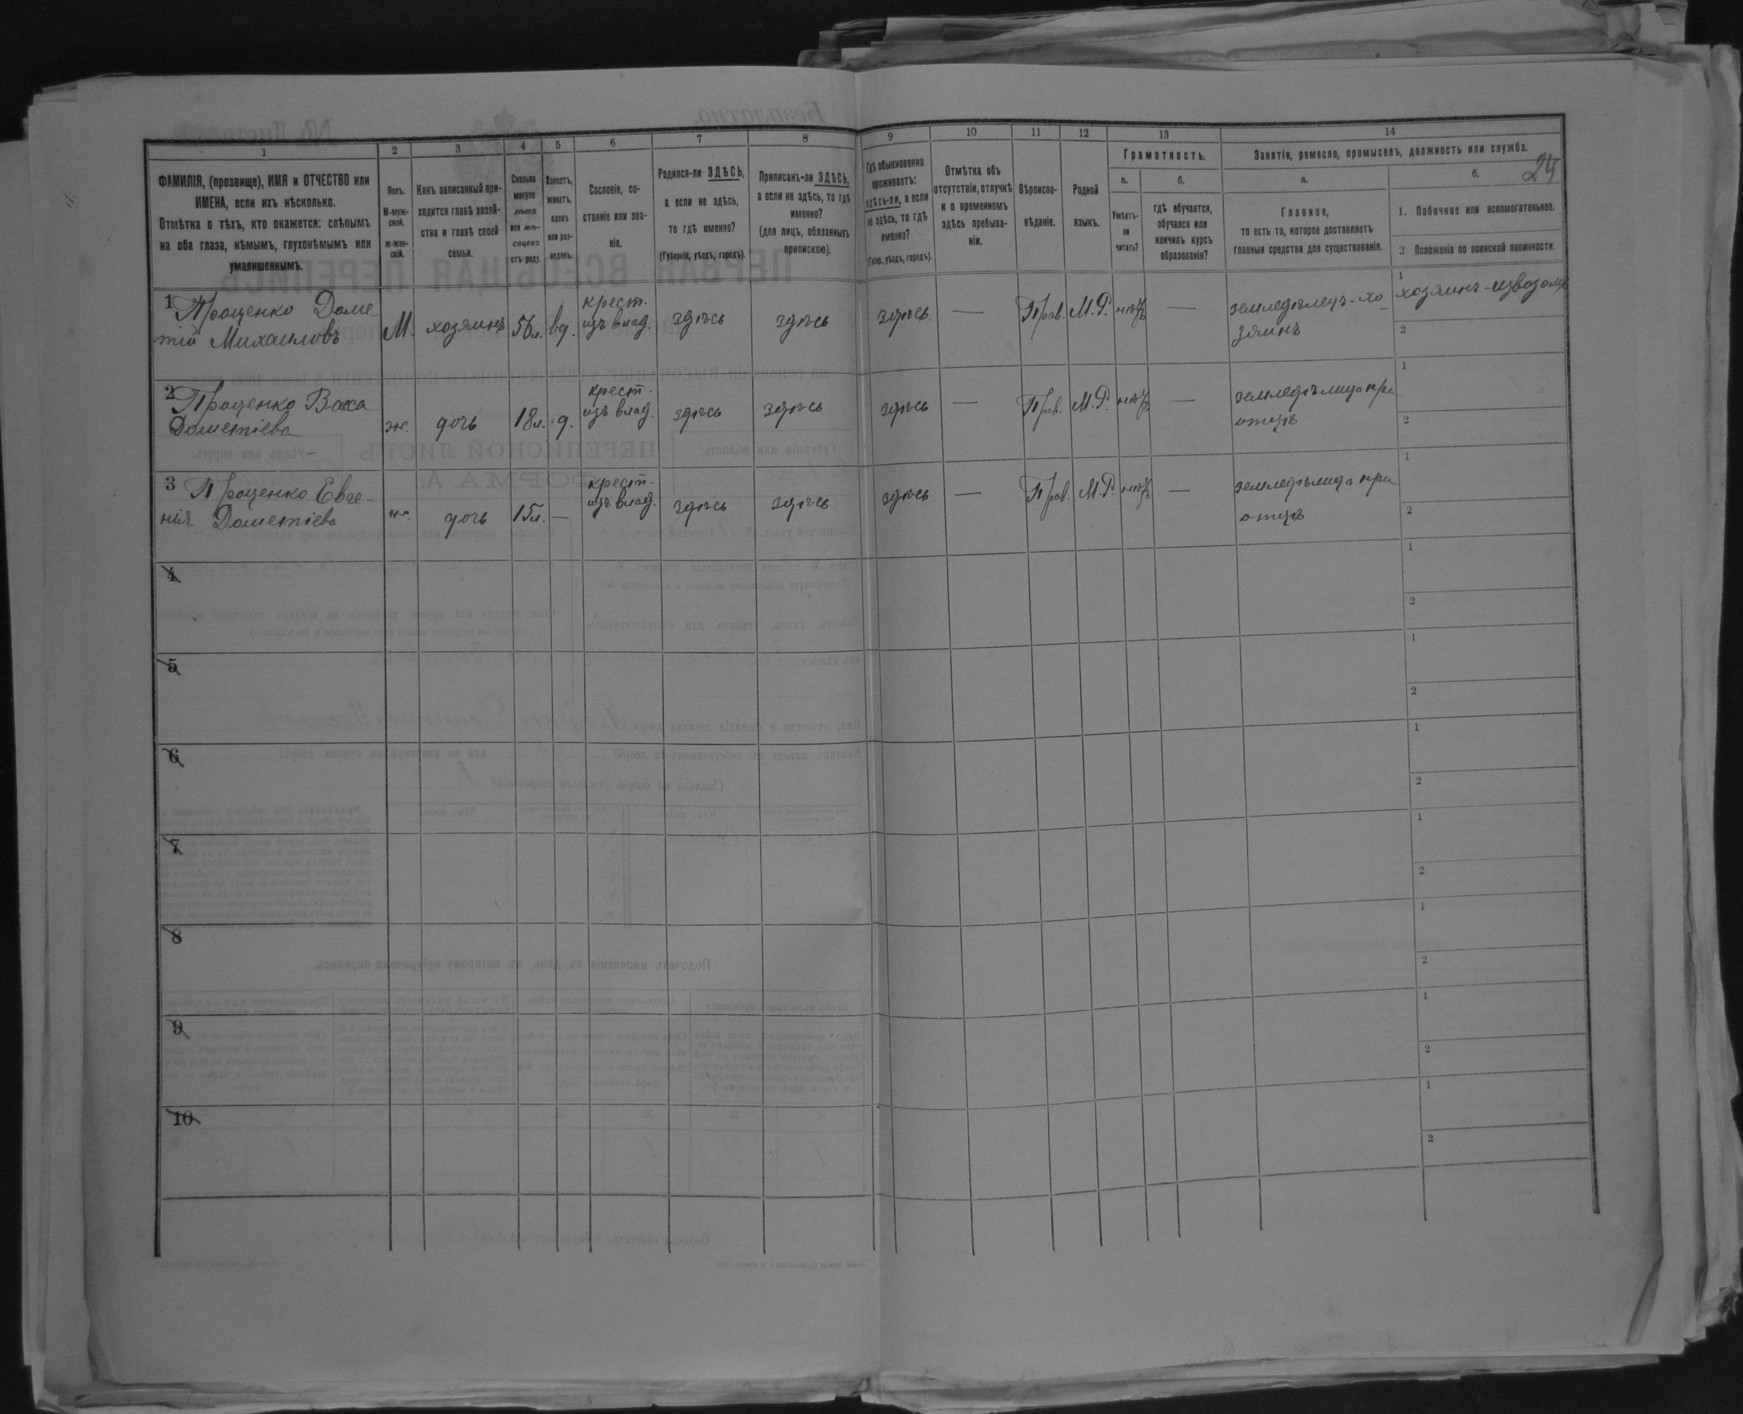 1 2 3 4 5 6 7 8 9 10 11 12 13 14
24
ФАМИЛІЯ, (прозвище), ИМЯ и ОТЧЕСТВО или
ИМЕНА, если ихъ нѣсколько.
Отмѣтка о тѣхъ, кто окажется: слѣпымъ
на оба глаза, нѣмымъ, глухонѣмымъ или
умалишеннымъ.
Полъ.
М-муж-
ской.
ж-жен-
скій.
Какъ записанный при-
ходится главѣ хозяй-
ства и главѣ своей
семьи.
Сколько
минуло
лѣтъ
или мѣ-
сяцевъ
отъ роду.
Холостъ,
женатъ,
вдовъ
или раз-
веденъ.
Сословіе, со-
стояніе или зва-
ніе.
Родился-ли ЗДѢСЬ,
а если не здѣсь,
то гдѣ именно?
(Губернія, уѣздъ, городъ).
Приписанъ-ли ЗДѢСЬ,
а если не здѣсь, то гдѣ
именно?
(для лицъ, обязанныхъ
припискою).
Гдѣ обыкновенно
проживаетъ:
здѣсь-ли, а если
не здѣсь, то гдѣ
именно?
(Губер., уѣздъ, городъ).
Отмѣтка объ
отсутствіи, отлучкѣ
и о временномъ
здѣсь пребыва-
ніи.
Вѣроиспо-
вѣданіе.
Родной
языкъ.
Грамотность.
а.
Умѣетъ-
ли
читать?
б.
гдѣ обучается,
обучался или
кончилъ курсъ
образованія?
Занятіе, ремесло, промыселъ, должность или служба.
а.
Главное,
то есть то, которое доставляетъ
главныя средства для существованія.
б.
1. Побочное или вспомогательное.
2 Положеніе по воинской повинности.
1 Проценко Доме
тій Михаиловъ
М.
хозяинъ
56 л.
вд.
крест.
изъ влад.
здѣсь
здѣсь
здѣсь
—
Прав.
М.Р.
нѣтъ
—
земледѣлецъ-хо
зяинъ
1 хозяинъ-извозомъ
2
2 Проценко Васса
Дометіева
ж.
дочь
18 л.
д.
крест.
изъ влад.
здѣсь
здѣсь
здѣсь
—
Прав.
М.Р.
нѣтъ
—
земледѣлица при
отцѣ
1
2
3 Проценко Евге-
нія Дометіева
ж.
дочь
15 л.
—
крест.
изъ влад.
здѣсь
здѣсь
здѣсь
—
Прав.
М.Р.
нѣтъ
—
земледѣлица при
отцѣ
1
2
4
1
2
5
1
2
6
1
2
7
1
2
8
1
2
9
1
2
10
1
2